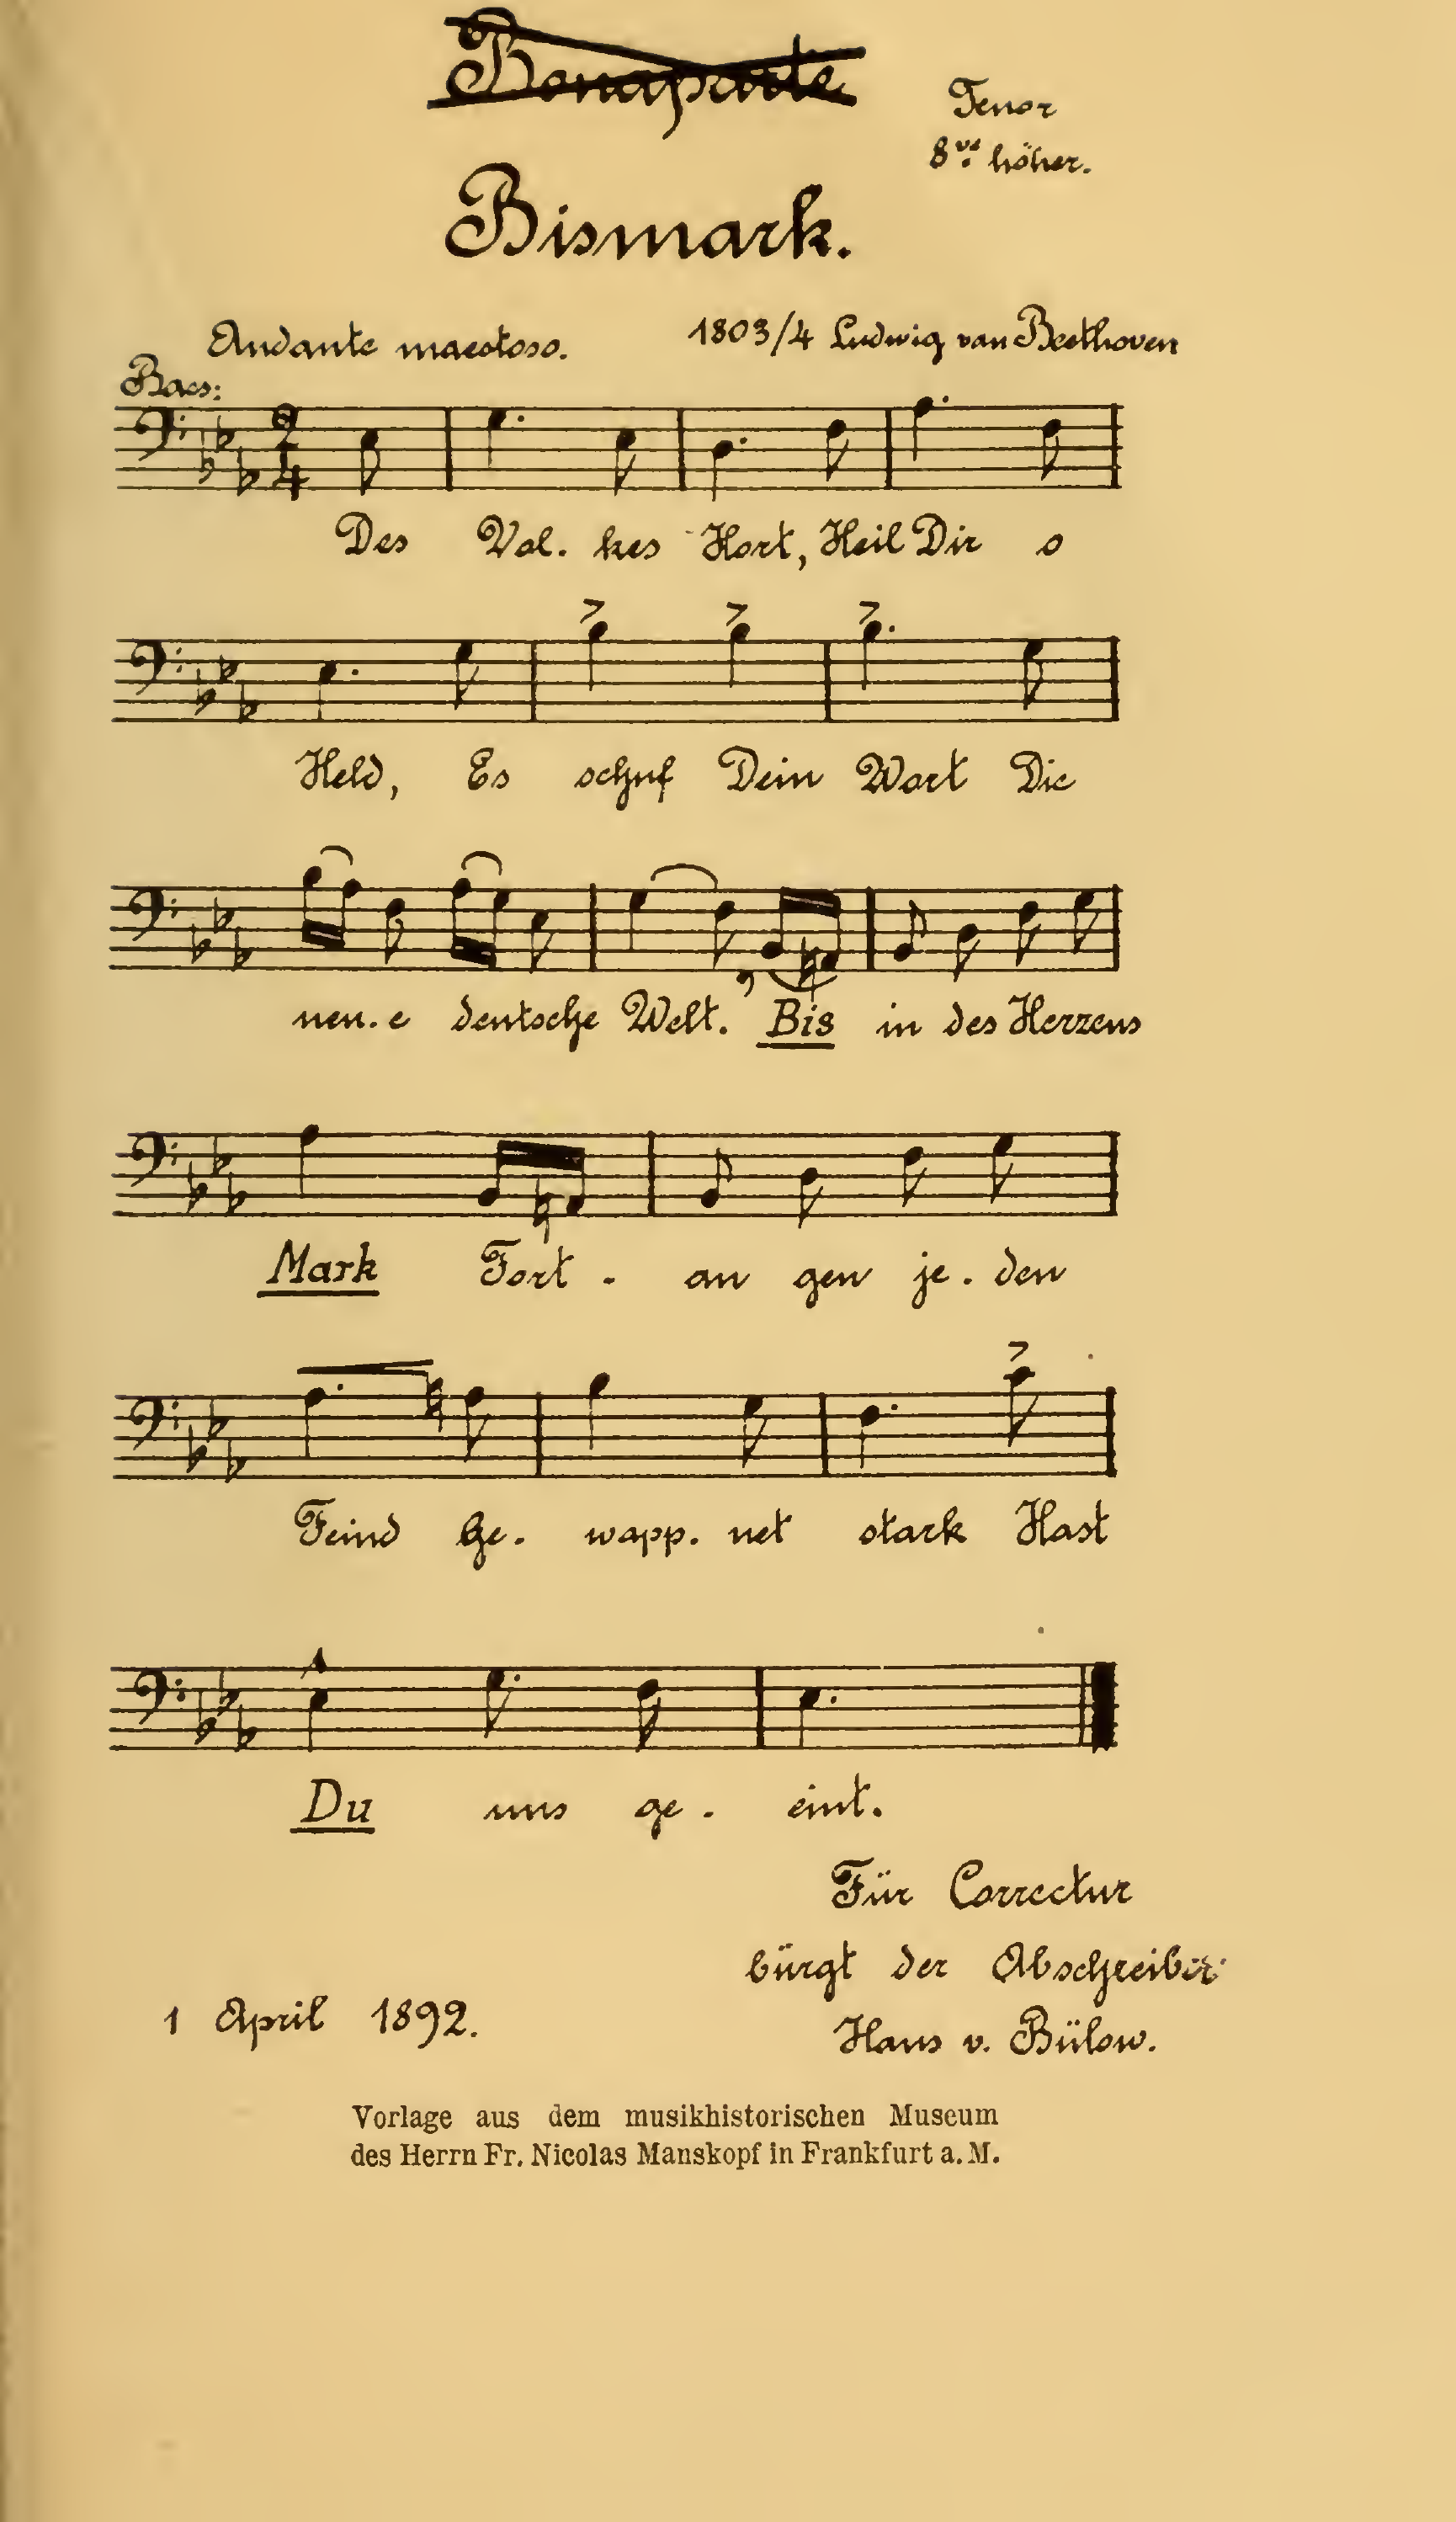 Bonaparte
Tenor
8va höher.
Bismark.
Andante maestoso. 1803/4 Ludwig van Beethoven
Bass:
2/4
Des Vol. kes Hort, Heil Dir o
Held, Es schuf Dein Wort Die
neu. e deutsche Welt. Bis in des Herzens
Mark Fort - an gen je. den
Feind Ge. wapp. net stark Hast
Du uns ge. eint.
Für Correctur
bürgt der Abschreiber
1 April 1892. Hans v. Bülow.
Vorlage aus dem musikhistorischen Museum
des Herrn Fr. Nicolas Manskopf in Frankfurt a. M.